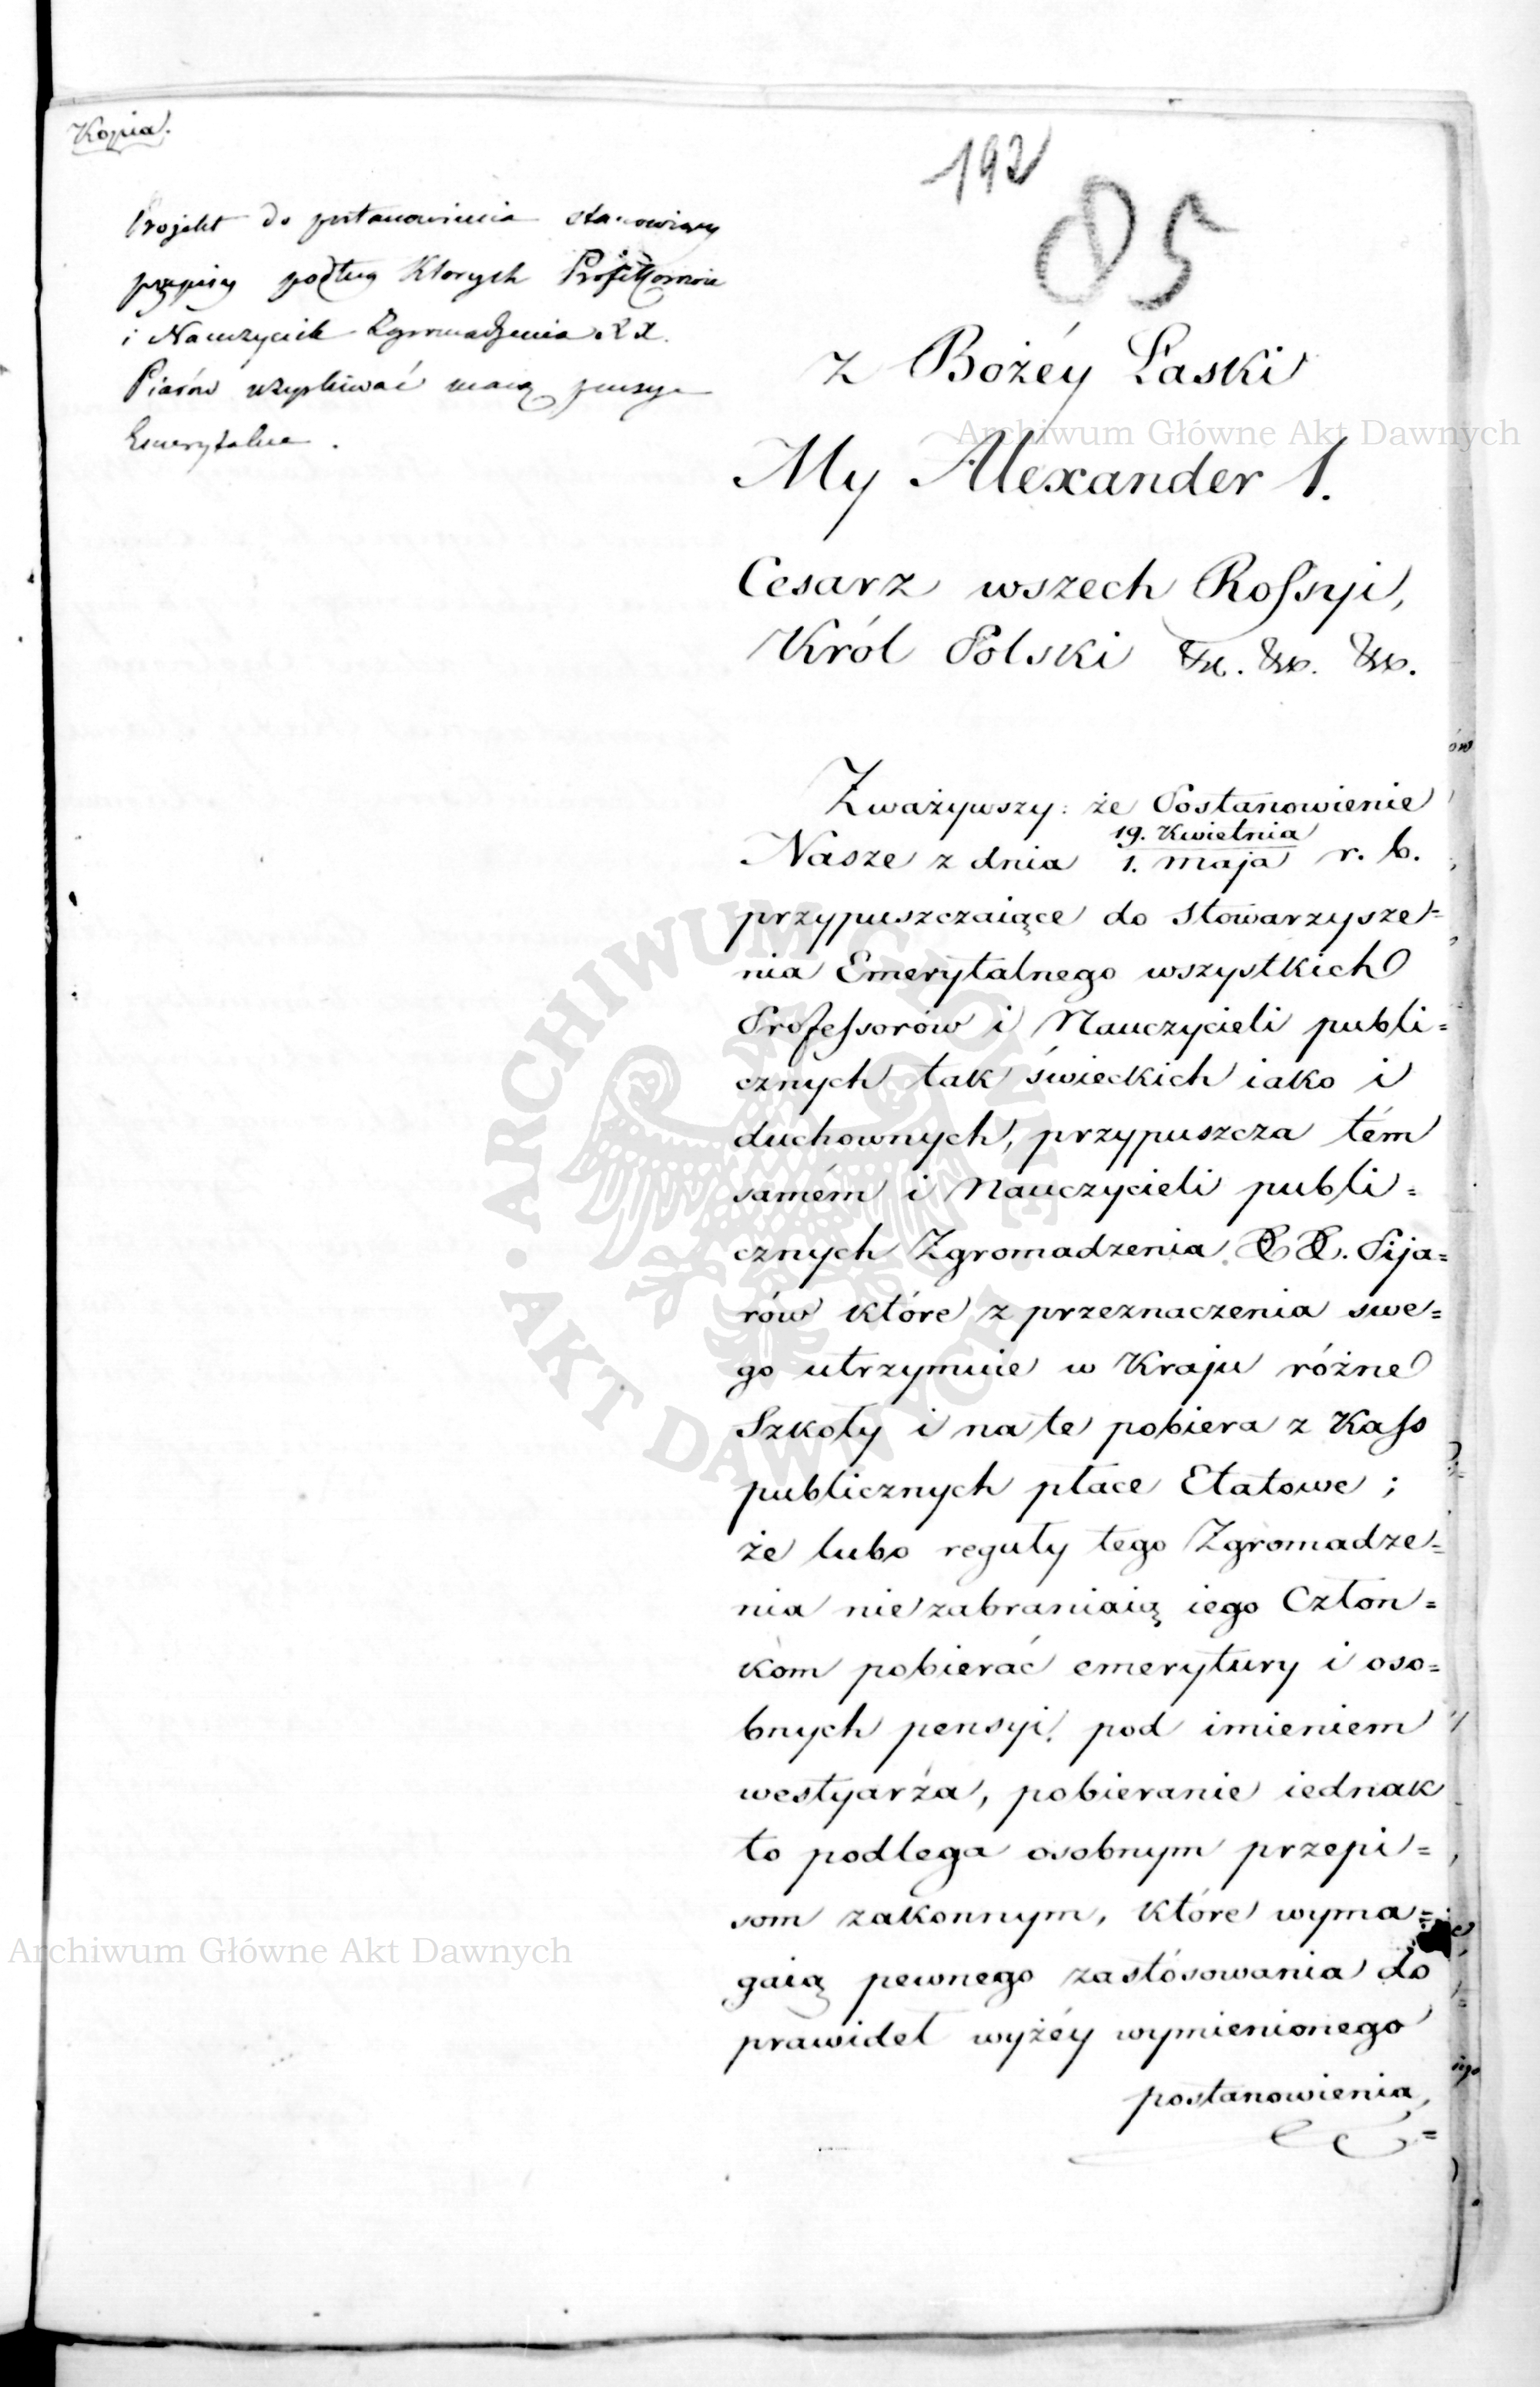 Kopia.
192
85
Projekt do postanowienia stanowiący
przepisy podług których Professorowie
i Nauczyciele Zgromadzenia XX.
Piarów uzyskiwać maią pensye
Emerytalne.
z Bożéy Łaski
My Alexander 1.
Cesarz wszech Rossyi,
Król Polski &c. &c. &c.
Zważywszy: że Postanowienie
Nasze z dnia 19. Kwietnia / 1. Maja r. b.
przypuszczaiące do Stowarzysze=
nia Emerytalnego wszystkich
Professorów i Nauczycieli publi=
cznych tak świeckich iako i
duchownych, przypuszcza tém
samém i Nauczycieli publi=
cznych Zgromadzenia XX. Pija=
rów które z przeznaczenia swe=
go utrzymuie w Kraju różne
Szkoły i na te pobiera z Kass
publicznych płace Etatowe;
że lubo reguły tego Zgromadze=
nia nie zabraniaią iego Człon=
kom pobierać emerytury i oso=
bnych pensyi pod imieniem
westyarza, pobieranie iednak
to podlega osobnym przepi=
som zakonnym, które wyma=
gaią pewnego zastósowania do
prawideł wyżéy wymienionego
postanowienia,
Archiwum Główne Akt Dawnych
Archiwum Główne Akt Dawnych
ARCHIWUM GŁÓWNE · AKT DAWNYCH ·